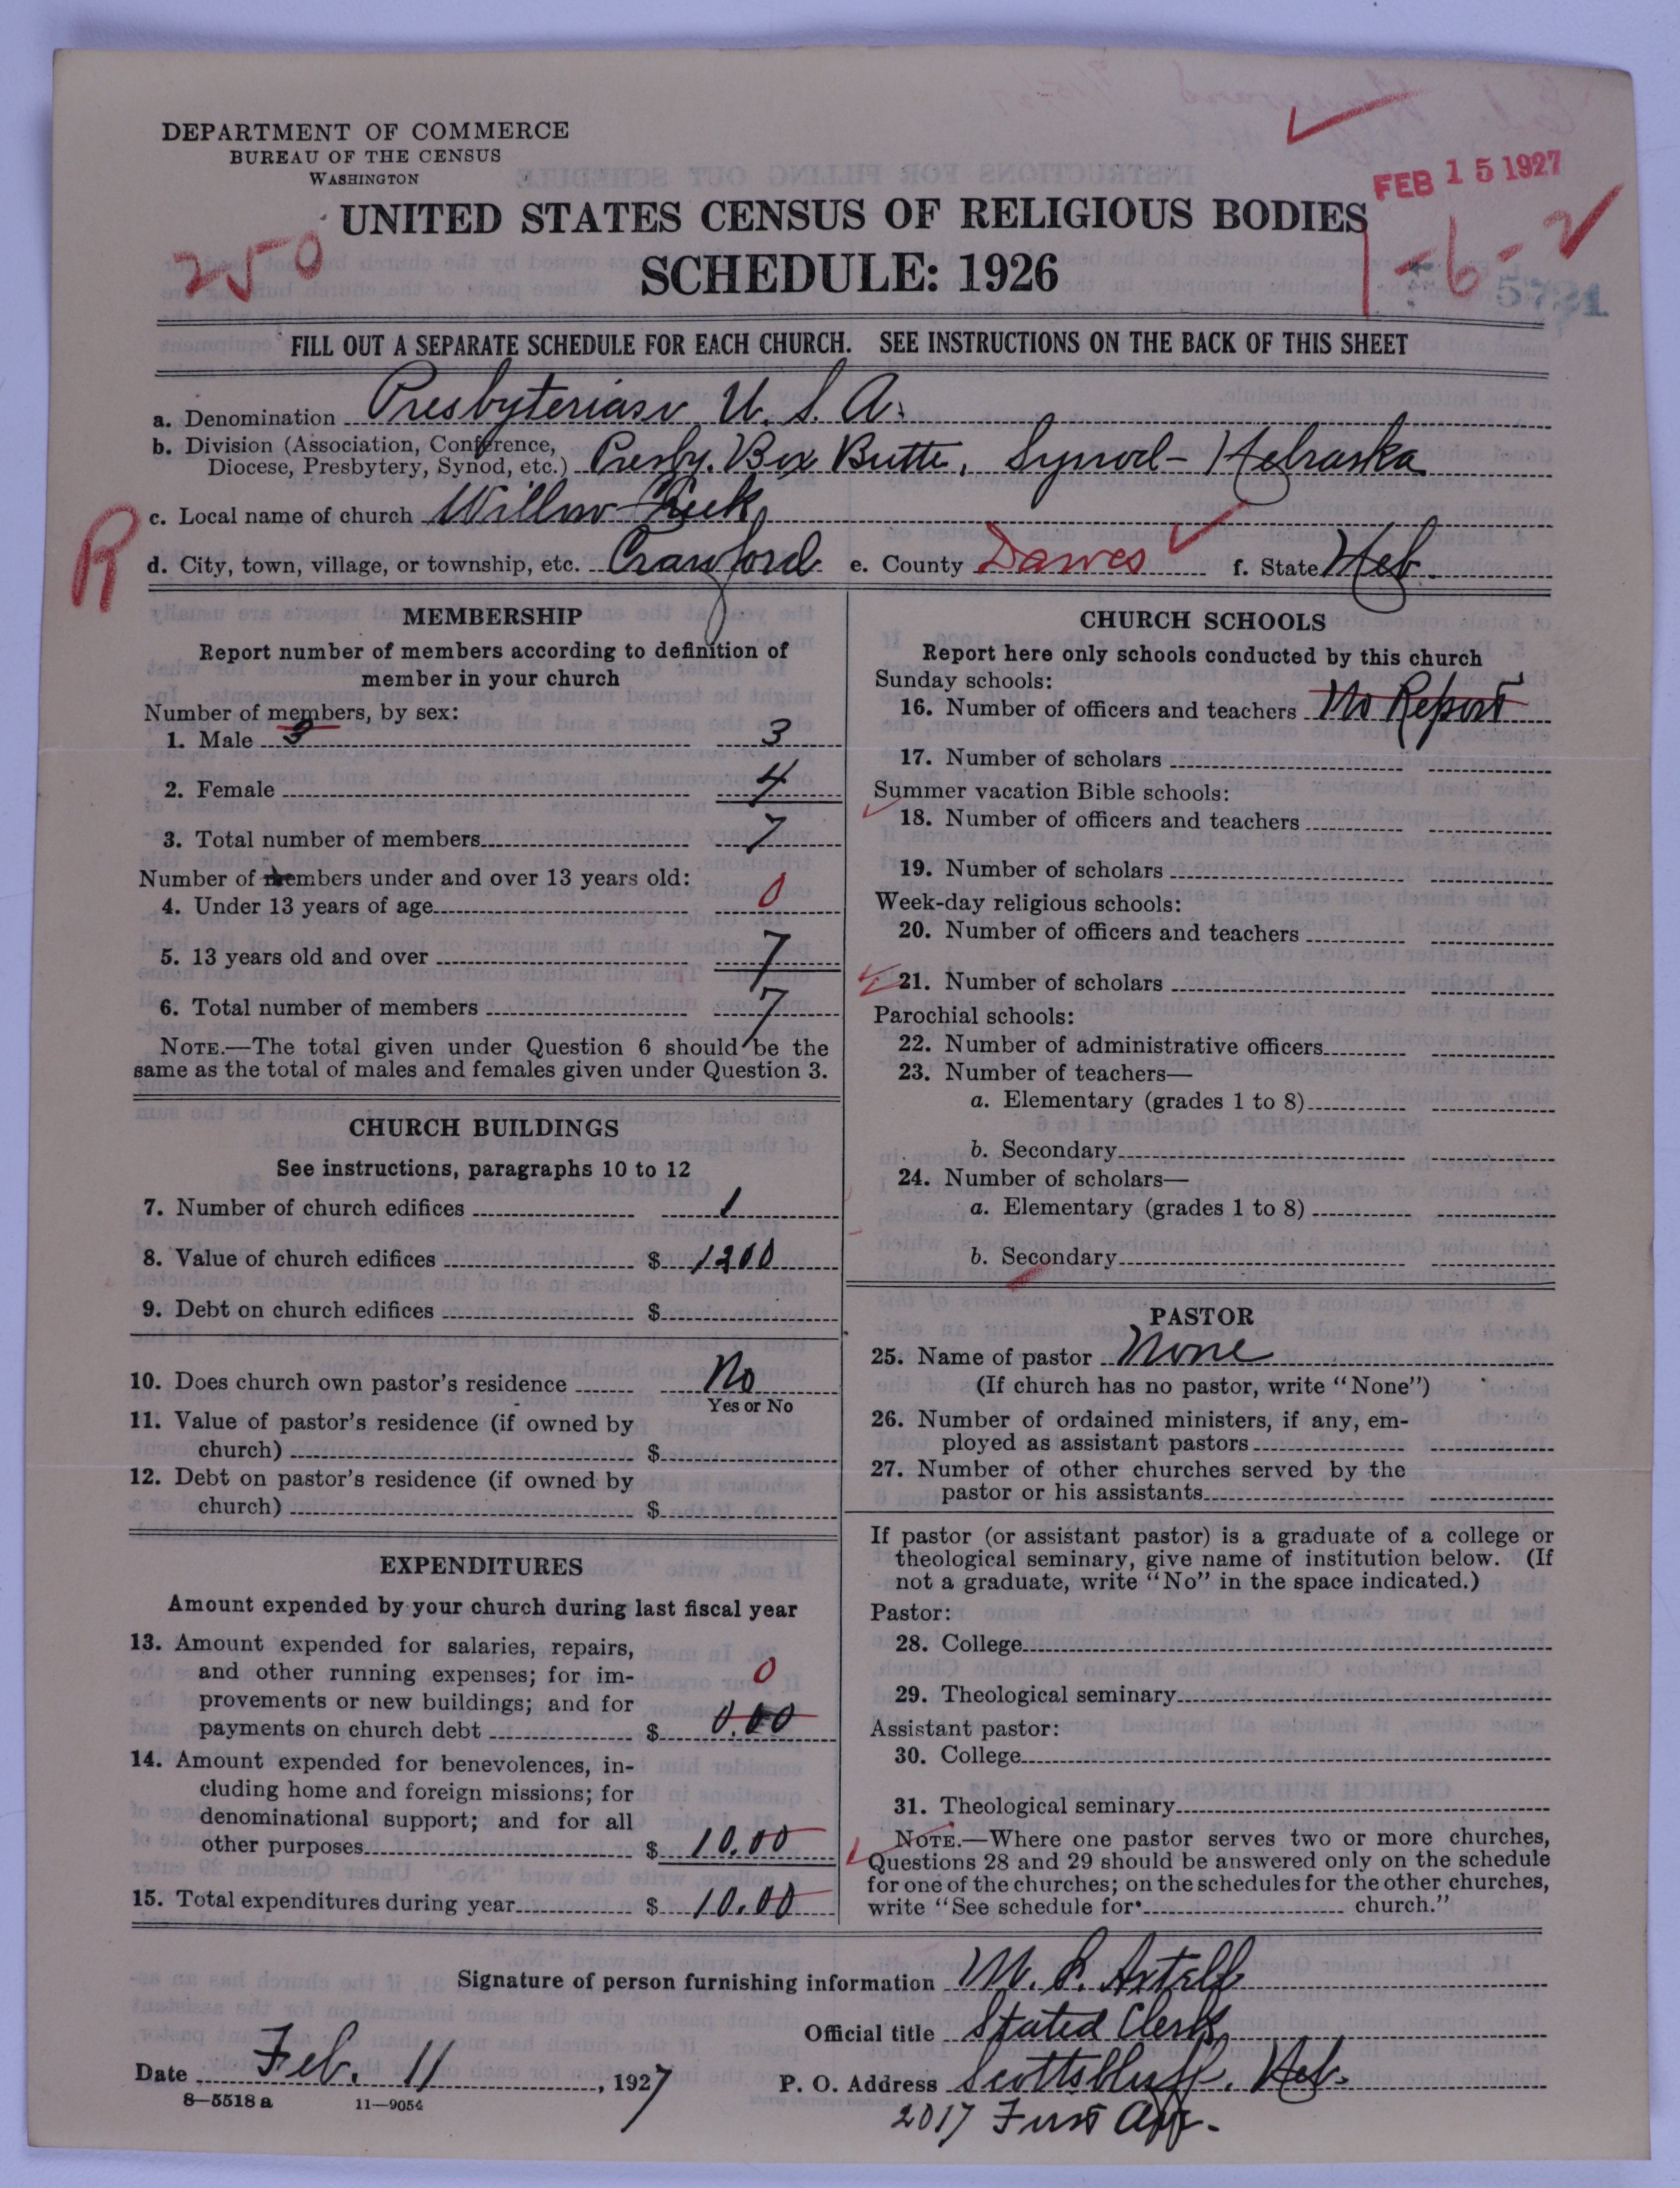 DEPARTMENT OF COMMERCE
BUREAU OF THE CENSUS
WASHINGTON
FEB 15 1927
UNITED STATES CENSUS OF RELIGIOUS BODIES
SCHEDULE: 1926
250
1-6-2
FILL OUT A SEPARATE SCHEDULE FOR EACH CHURCH. SEE INSTRUCTIONS ON THE BACK OF THIS SHEET
a. Denomination Presbyterian U. S. A.
b. Division (Association, Conference,
Diocese, Presbytery, Synod, etc.) Presby. Box Butte, Synod - Nebraska
R
c. Local name of church Willow Creek
d. City, town, village, or township, etc. Crawford e. County Dawes f. State Neb.
MEMBERSHIP
Report number of members according to definition of
member in your church
Number of members, by sex:
1. Male 3 3
2. Female 4
3. Total number of members 7
Number of members under and over 13 years old:
4. Under 13 years of age 0
5. 13 years old and over 7
6. Total number of members 7
NOTE.—The total given under Question 6 should be the
same as the total of males and females given under Question 3.
CHURCH BUILDINGS
See instructions, paragraphs 10 to 12
7. Number of church edifices 1
8. Value of church edifices $ 1200
9. Debt on church edifices $
10. Does church own pastor's residence No
Yes or No
11. Value of pastor's residence (if owned by
church) $
12. Debt on pastor's residence (if owned by
church) $
EXPENDITURES
Amount expended by your church during last fiscal year
13. Amount expended for salaries, repairs,
and other running expenses; for im-
provements or new buildings; and for
payments on church debt $ 0.00
0
14. Amount expended for benevolences, in-
cluding home and foreign missions; for
denominational support; and for all
other purposes $ 10.00
15. Total expenditures during year $ 10.00
CHURCH SCHOOLS
Report here only schools conducted by this church
Sunday schools:
16. Number of officers and teachers No Report
17. Number of scholars
Summer vacation Bible schools:
18. Number of officers and teachers
19. Number of scholars
Week-day religious schools:
20. Number of officers and teachers
21. Number of scholars
Parochial schools:
22. Number of administrative officers
23. Number of teachers—
a. Elementary (grades 1 to 8)
b. Secondary
24. Number of scholars—
a. Elementary (grades 1 to 8)
b. Secondary
PASTOR
25. Name of pastor None
(If church has no pastor, write "None")
26. Number of ordained ministers, if any, em-
ployed as assistant pastors
27. Number of other churches served by the
pastor or his assistants
If pastor (or assistant pastor) is a graduate of a college or
theological seminary, give name of institution below. (If
not a graduate, write "No" in the space indicated.)
Pastor:
28. College
29. Theological seminary
Assistant pastor:
30. College
31. Theological seminary
NOTE.—Where one pastor serves two or more churches,
Questions 28 and 29 should be answered only on the schedule
for one of the churches; on the schedules for the other churches,
write "See schedule for church."
Signature of person furnishing information M.
Official title Stated Clerk
Date Feb. 11, 1927
P. O. Address Scottsbluff, Neb.
2017 First Ave.
8-5518a 11-9054